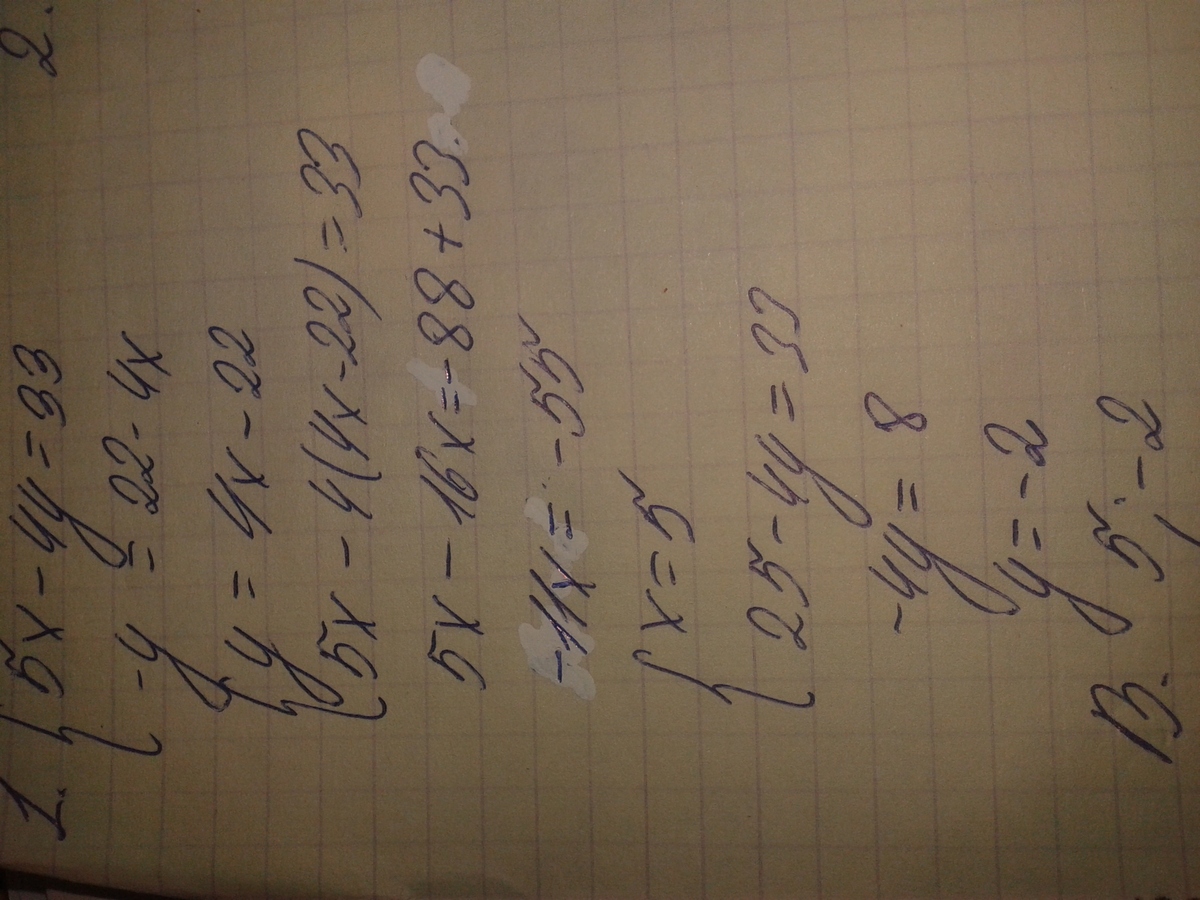 1. { 5x - 4y = 33
-y = 22 - 4x
{ y = 4x - 22
5x - 4(4x - 22) = 33
5x - 16x = -88 + 33.
-11x = -55
{ x = 5
25 - 4y = 33
-4y = 8
y = -2
В. 5; -2
2.